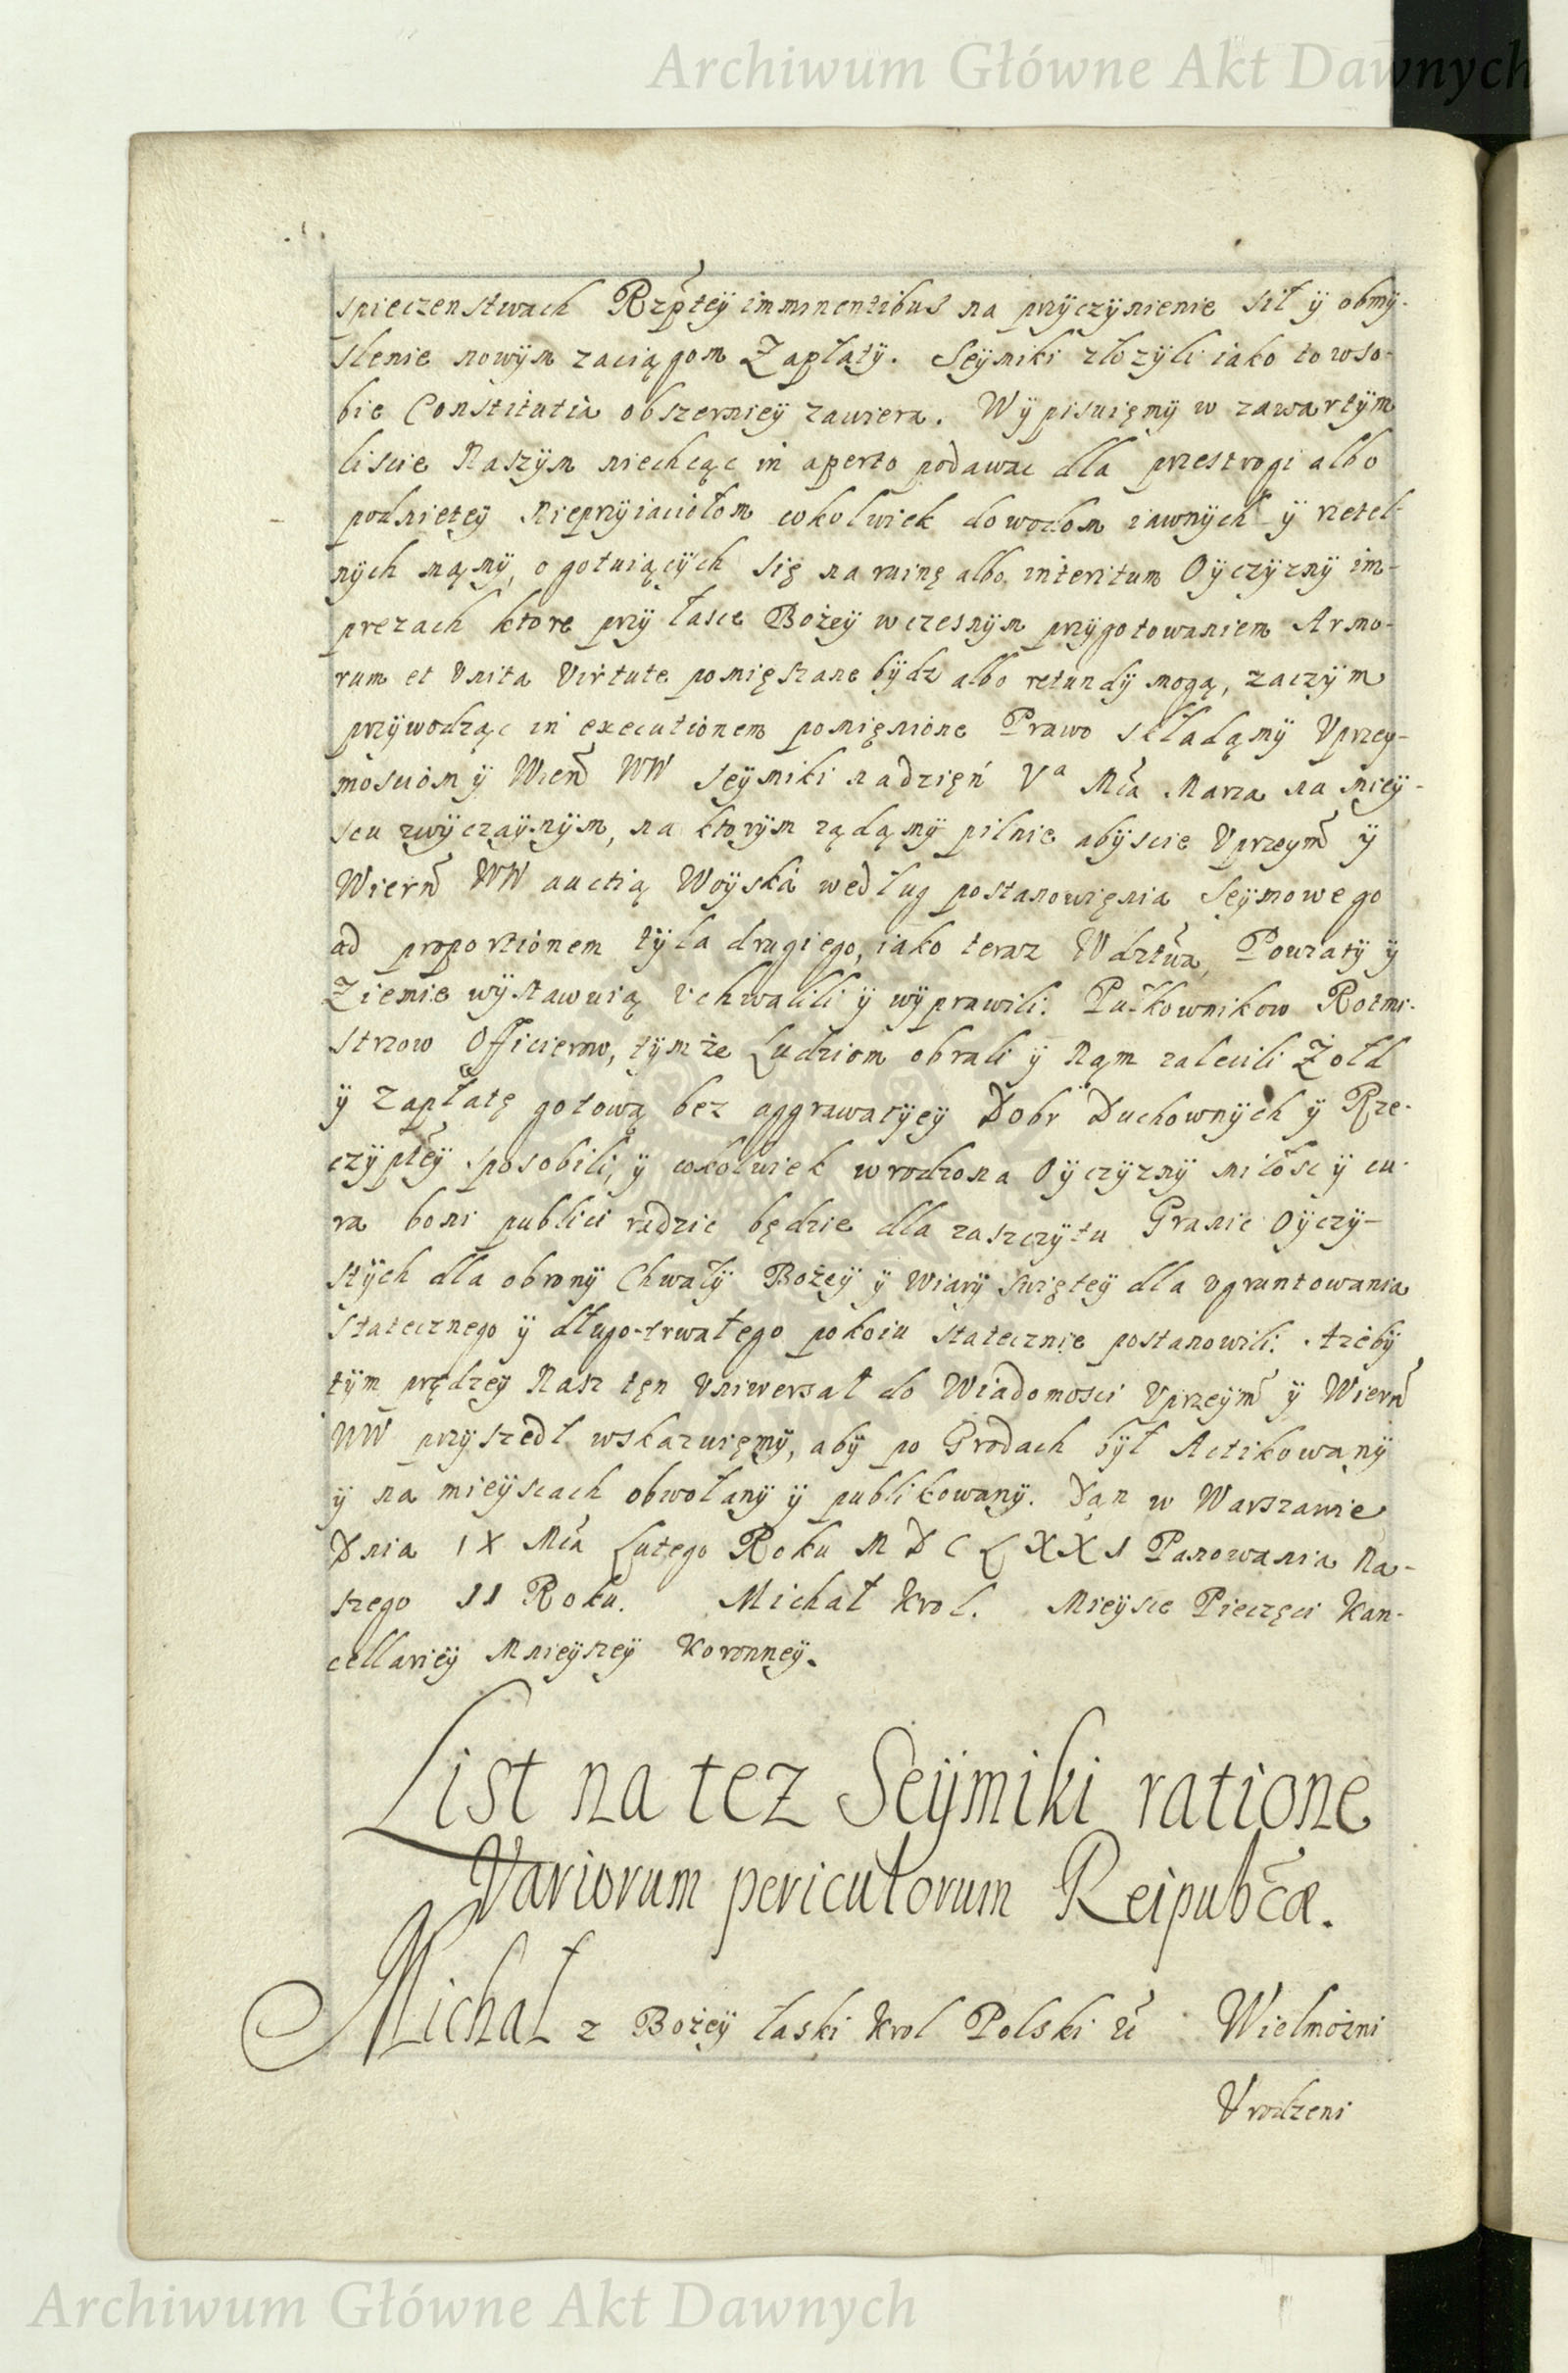 Archiwum Główne Akt Dawnych
spieczenstwach Rzpteÿ imminentibus na przÿczÿnienie sił ÿ obmÿ-
slenie nowÿm zaciągom Zapłatÿ. Seÿmiki złozÿli iako to wso-
bie Constitutia obszernieÿ zawiera. Wÿpisuięmÿ w zawartÿm
liscie Naszÿm niechcąc in aperto podawac dla przestrogi albo
podnieteÿ Nieprzÿiaciołom cokolwiek dowodow iawnÿch ÿ rzetel-
nÿch mąmÿ, o gotuiącÿch się na ruinę albo interitum Oÿczÿznÿ im-
prezach ktore przÿ łasce Bożeÿ wczesnÿm przÿgotowaniem Armo-
rum et Vnita Virtute pomięszane bÿdz albo retundÿ mogą, zaczÿm
przÿwodząc in executionem pomięnione Prawo składąmÿ Vprzey-
mosciom ÿ Wiern WW Seÿmiki nadzięń Va Mca Marca na mieÿ-
scu zwÿczaÿnÿm, na ktorÿm ządąmÿ pilnie abÿscie Vprzeym ÿ
Wiern WW auctią Woÿska według postanowięnia Seÿmowego
ad proportionem tÿla drugiego, iako teraz Wdztwa, Powiatÿ ÿ
Ziemie wÿstawuią vchwalili ÿ wÿprawili. Pułkownikow Rotmi-
strzow Officierow, tÿmże Ludziom obrali ÿ Nąm zalecili Żołd
ÿ Zapłatę gotową bez aggrawatÿeÿ Dobr Duchownÿch ÿ Rze-
czÿpteÿ sposobili, ÿ cokolwiek wrodzona Oÿczÿznÿ miłosc ÿ cu-
ra boni publici radzic będzie dla zaszczÿtu Granic Oÿczÿ-
stÿch dla obronÿ Chwałÿ Bożeÿ ÿ Wiarÿ swięteÿ dla vgruntowania
statecznego ÿ długo-trwałego pokoiu statecznie postanowili. Ażebÿ
tÿm prędzeÿ Nasz tęn Vniwersał do Wiadomosci Vprzeym ÿ Wiern
WW przÿszedł wskazuięmÿ, abÿ po Grodach bÿł Actikowanÿ
ÿ na mieÿscach obwołanÿ ÿ publikowanÿ. Dąn w Warszawie
Dnia IX Mca Lutego Roku MDCLXXI Panowania Na-
szego II Roku. Michał Krol. Mieÿsce Pieczęci Kan-
cellarieÿ Mnieÿszeÿ Koronneÿ.
List na tez Seÿmiki ratione
Variorum periculorum Reipubcæ.
Michał z Bożeÿ łaski Krol Polski &c Wielmożni
Vrodzeni
Archiwum Główne Akt Dawnych